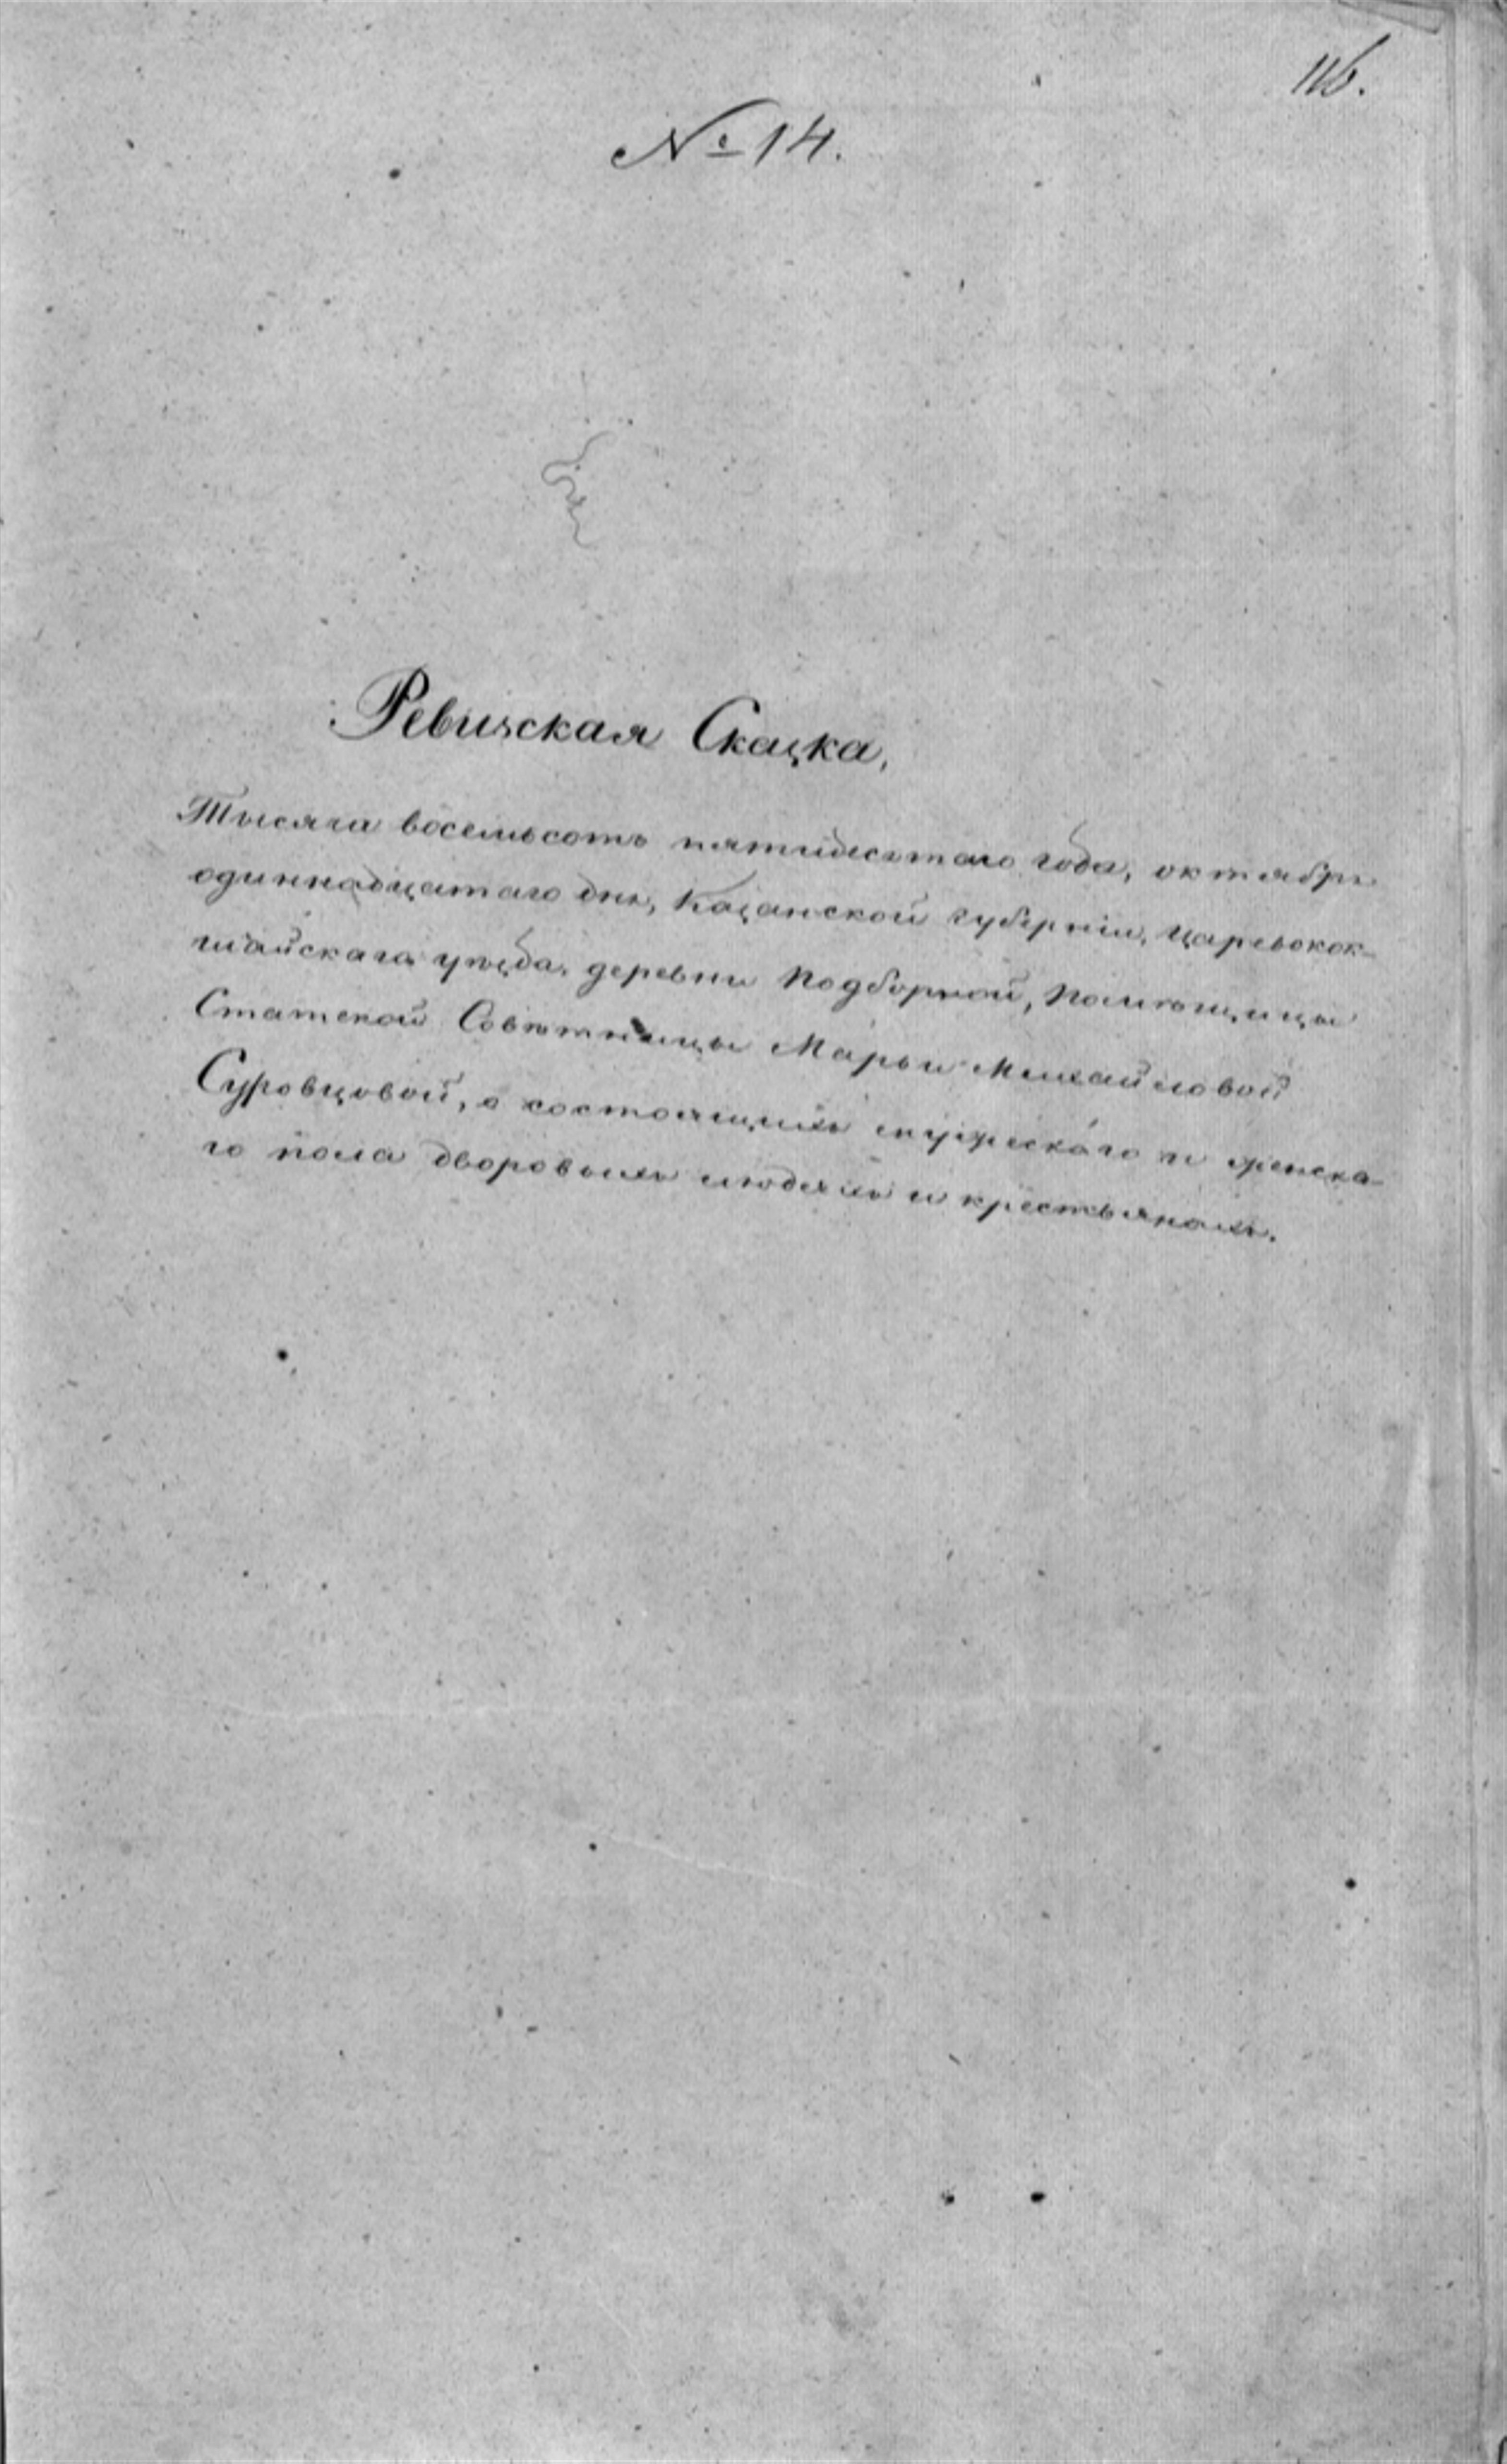 116.
№ 14.
Ревизская Сказка,
Тысяча восемьсотъ пятидесятаго года, октября
одиннадцатаго дня, Казанской губерніи, Царевокок-
шайскаго уѣзда, деревни Подборной, Помѣщицы
Статской Совѣтницы Марьи Михайловой
Суровцовой, о состоящихъ мужескаго и женска-
го пола дворовыхъ людяхъ и крестьянахъ.